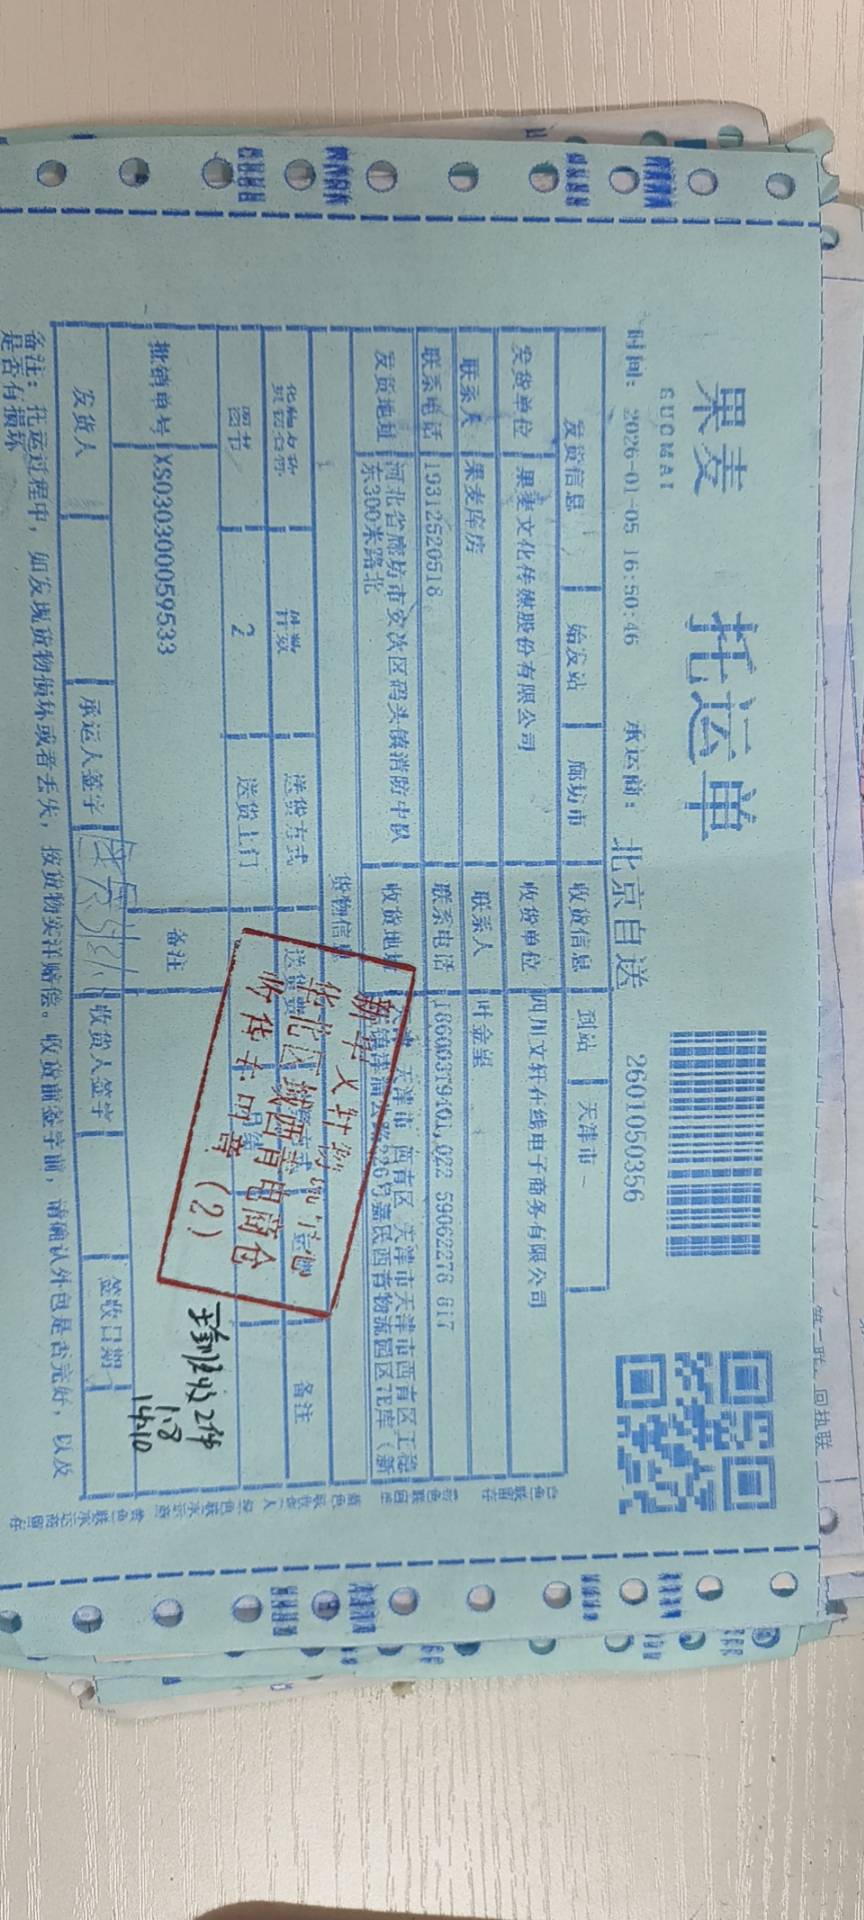 果麦
GUOMAI
托运单
2601050356
时间: 2026-01-05 16:50:46 承运商: 北京自送
发货信息 始发站 廊坊市 收货信息 到站 天津市
发货单位 果麦文化传媒股份有限公司 收货单位 四川文轩在线电子商务有限公司
联系人 果麦库房 联系人 叶金星
联系电话 19312520518 联系电话 18600379401,022 59062278 817
发货地址 河北省廊坊市安次区码头镇消防中队东300米路北 收货地址 天津市 西青区 天津市天津市西青区王稳
嘉民西青物流园区7E库（新
货物信息
货物名称 件数 送货方式 备注
图书 2 送货上门
批销单号 XS030300059533 备注
发货人 承运人签字 收货人签字 签收日期
备注: 托运过程中, 如发现货物损坏或者丢失, 按货物实洋赔偿。收货前签字前, 请确认外包是否完好, 以及
是否有损坏
新华文轩物流
华北区域西青电商仓
收货专用章（2）
2件
1.8
14:10
第二联, 回执联